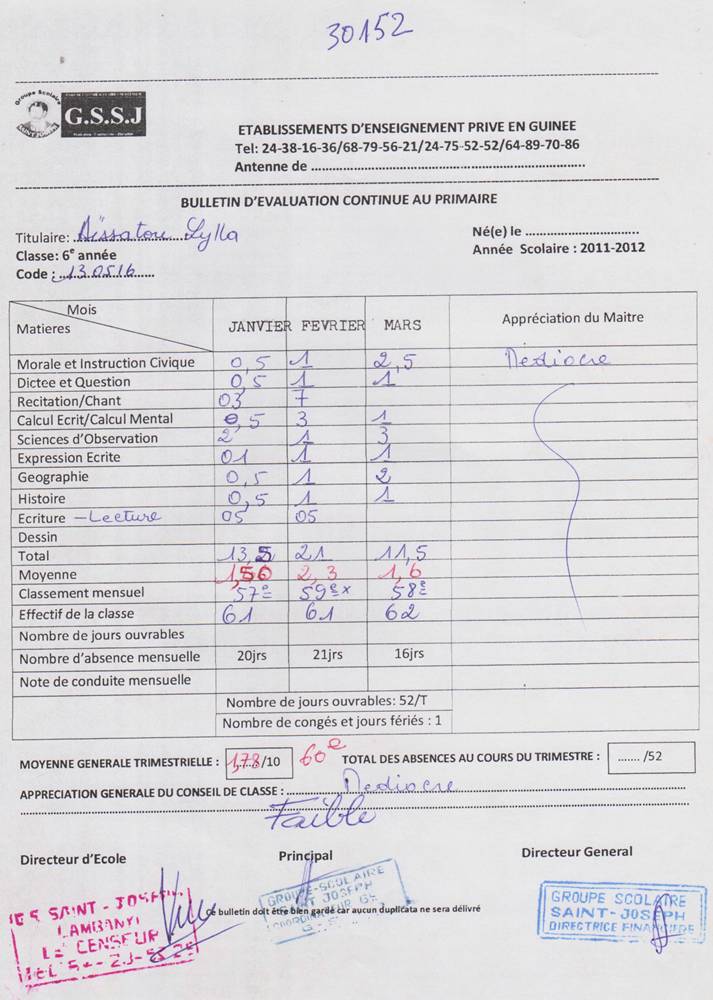 30152
Groupe Scolaire
G.S.S.J
ETABLISSEMENTS D'ENSEIGNEMENT PRIVE EN GUINEE
Tel: 24-38-16-36/68-79-56-21/24-75-52-52/64-89-70-86
Antenne de ......................................................................
BULLETIN D'EVALUATION CONTINUE AU PRIMAIRE
Titulaire: Aïssatou Sylla Né(e) le ................................
Classe: 6e année Année Scolaire : 2011-2012
Code : 130516
Mois
Matieres JANVIER FEVRIER MARS Appréciation du Maitre
Morale et Instruction Civique 0,5 1 2,5 Mediocre
Dictee et Question 0,5 1 1
Recitation/Chant 03 7
Calcul Ecrit/Calcul Mental 0,5 3 1
Sciences d'Observation 2 1 3
Expression Ecrite 01 1 1
Geographie 0,5 1 2
Histoire 0,5 1 1
Ecriture – Lecture 05 05
Dessin
Total 13,5 21 11,5
Moyenne 1,50 2,3 1,6
Classement mensuel 57e 59e x 58e
Effectif de la classe 61 61 62
Nombre de jours ouvrables
Nombre d'absence mensuelle 20jrs 21jrs 16jrs
Note de conduite mensuelle
Nombre de jours ouvrables: 52/T
Nombre de congés et jours fériés : 1
MOYENNE GENERALE TRIMESTRIELLE : 1,78/10 60e TOTAL DES ABSENCES AU COURS DU TRIMESTRE : ...... /52
APPRECIATION GENERALE DU CONSEIL DE CLASSE : Mediocre
Faible
Directeur d'Ecole Principal Directeur General
G S SAINT - JOSEPH
LAMBANYI
LE CENSEUR
GROUPE-SCOLAIRE
SAINT JOSEPH
GROUPE SCOLAIRE
SAINT-JOSEPH
DIRECTRICE FINANCIERE
Ce bulletin doit être bien gardé car aucun duplicata ne sera délivré